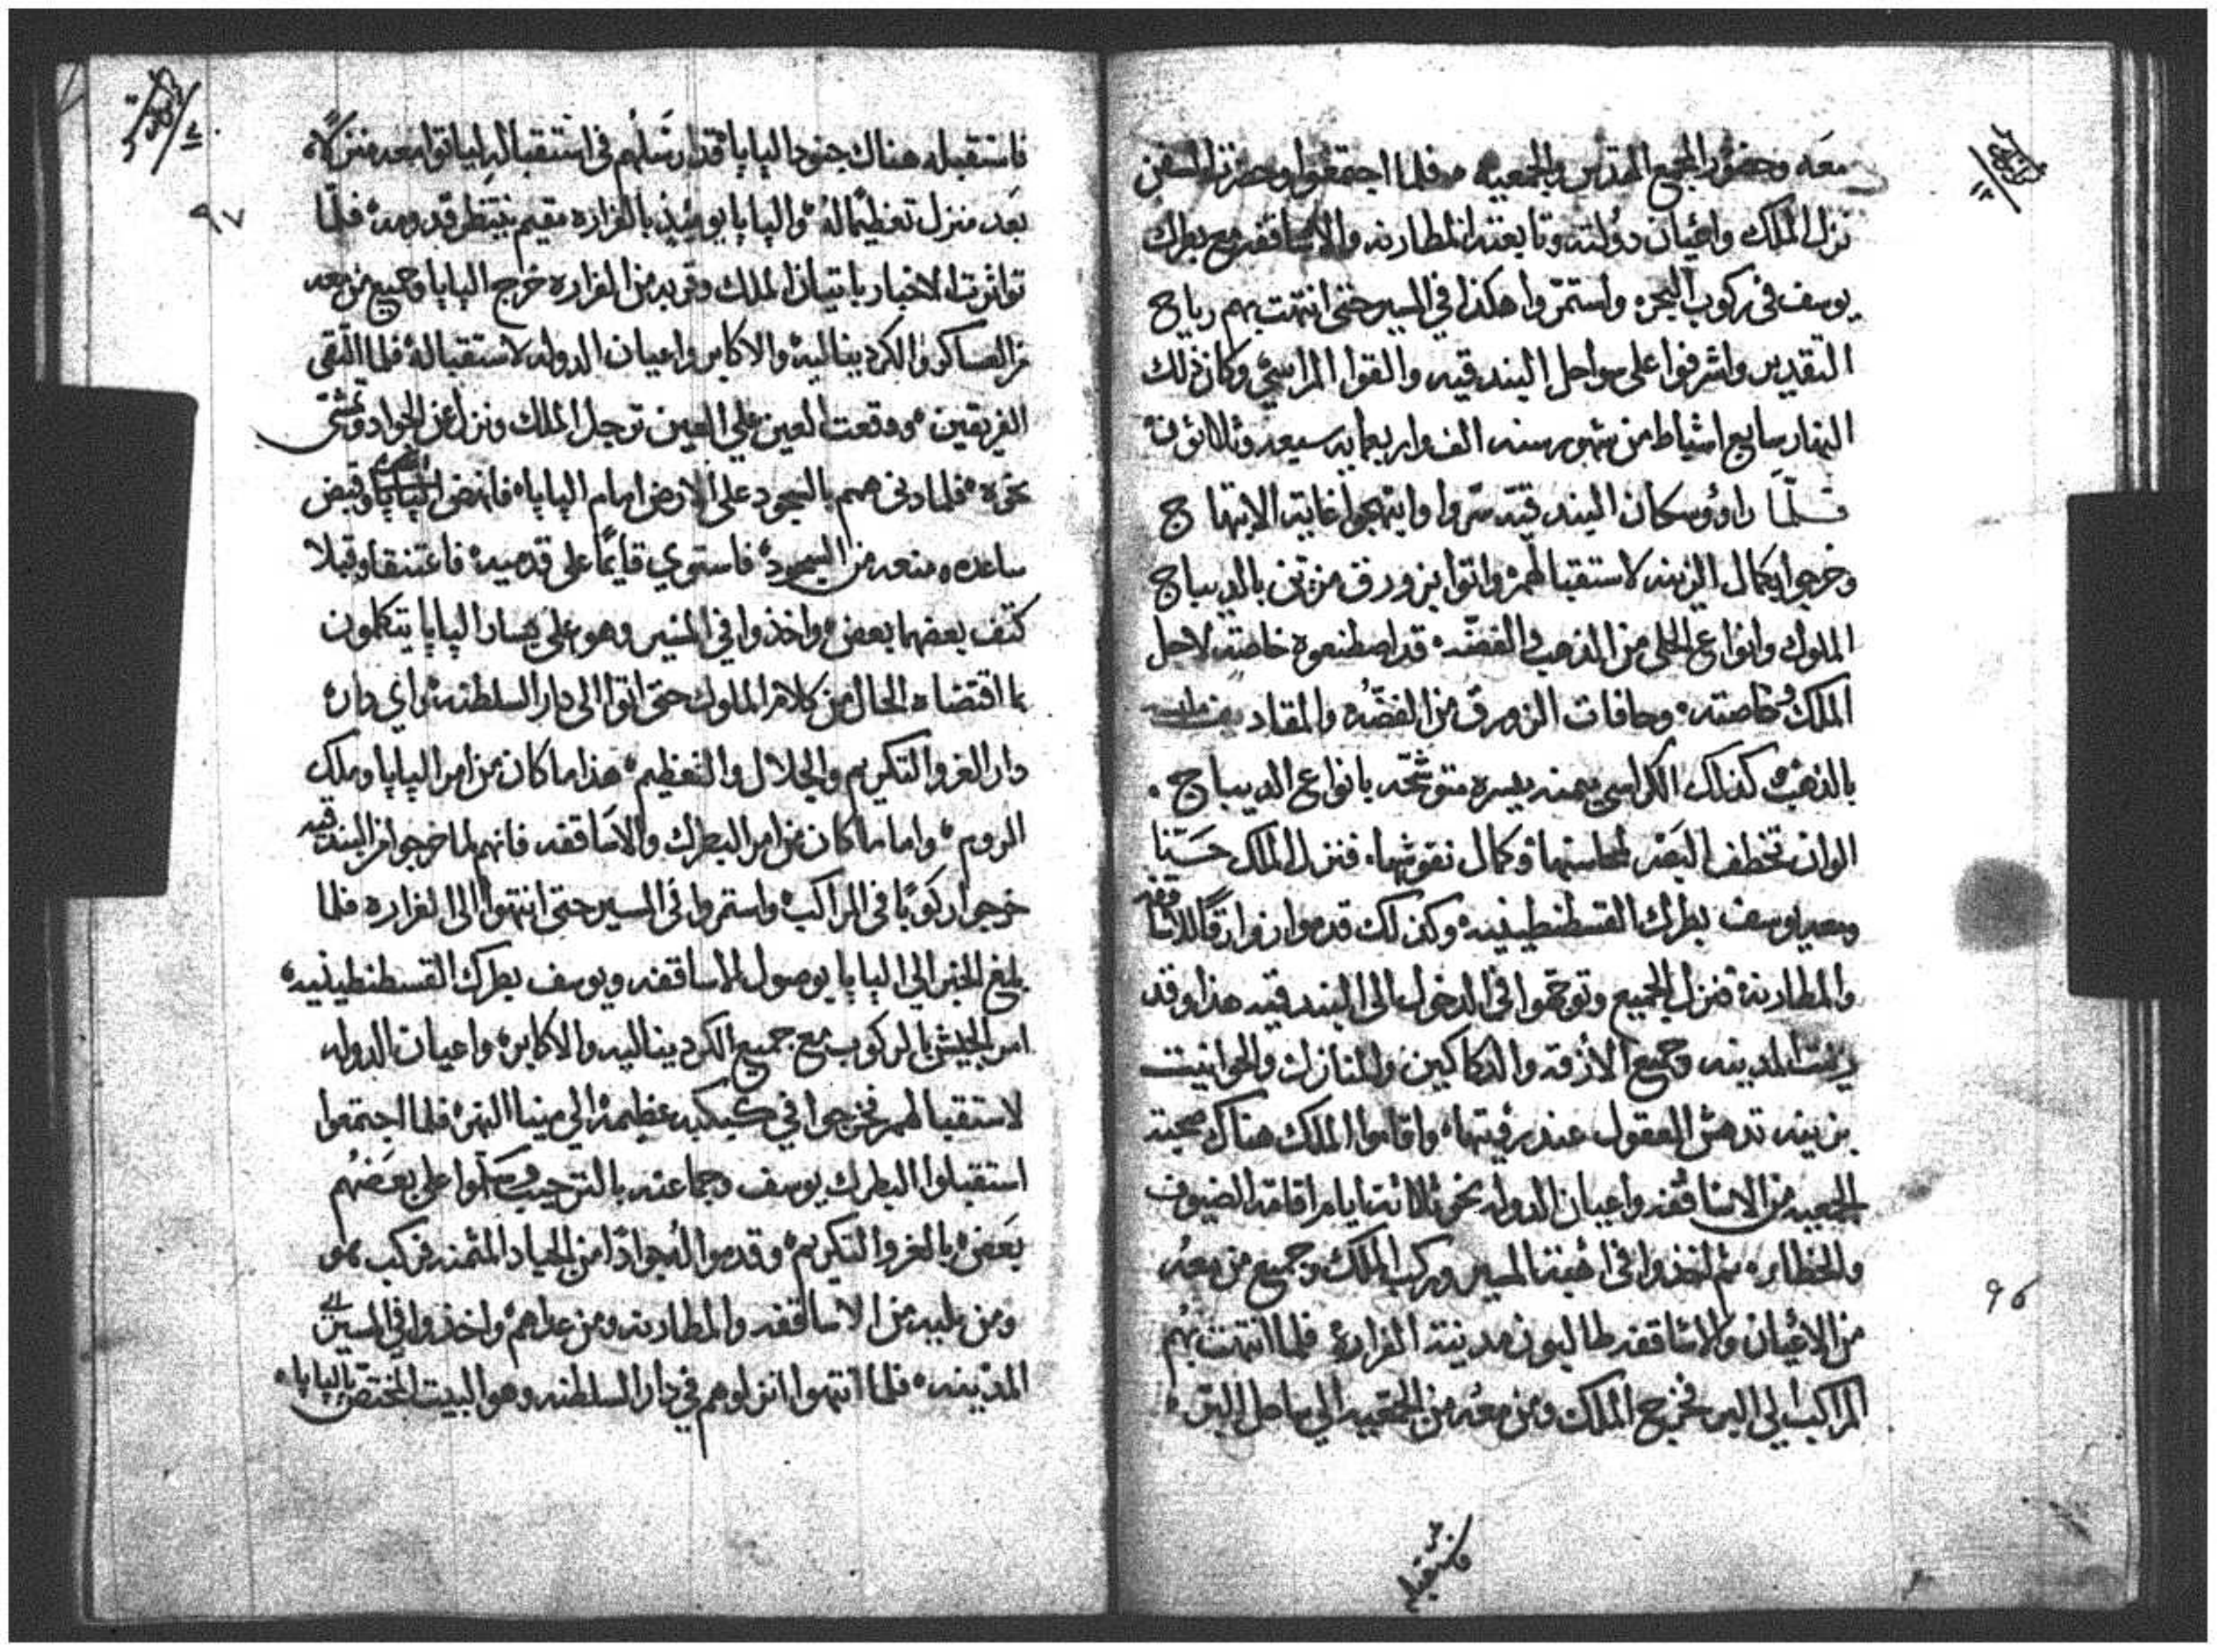 معه وحضور المجمع المقدس والجمعيه ۰ فلما اجتمعوا وحضرة السفن
نزل الملك واعيان دولته وتابعته المطارنه والاساقفه مع بطرك
يوسف في ركوب البحر ۰ واستمروا هكذا في السير حتى انتهت بهم رياح
التقدير واشرفوا على سواحل البندقيه والقوا المراسي وكان ذلك
النهار سابع اشباط من شهور سنه الف واربعمايه سبعه وثلاثون
فلمّا راوؤ سكان البندقيّه سرّوا وابتهجوا غاية الابتهاج
وخرجوا بكمال الزينه لاستقبالهم واتوا بزورق مزين بالديباج
الملوك وانواع الحلي من الذهب والفضّه ۰ قد اصطنعوه خاصة لاجل
الملك وخاصته ۰ وحافات الزورق من الفضّه والمقاديف
بالذهب كذلك الكراسي يمنه يسره متوشحّه بانواع الديباج ۰
الوان تخطف البصر لمحاسنها وكمال نقوشها ۰ فنزل الملك حسّنا
ومعه يوسف بطرك القسطنطينيه وكذلك قدموا زوارقًا للاساقفه
والمطارنه فنزل الجميع وتوجّهوا في الدخول الى البندقيه هذا وقد
زينت المدينه وجميع الأزقه والدكاكين والمنازل والحوانيت
بزينه تدهش العقول عند رؤيتها ۰ واقاموا الملك هناك صحبة
الجمعيه من الاساقفه واعيان الدوله نحو ثلاثة ايام اقامة الضيوف
والخطار ۰ ثم اخذوا في اهبة المسير وركب الملك وجميع من معه
من الاعيان والاساقفه طالبون مدينة الفراره فلما انتهت بهُم
المراكب الى البر فخرج الملك ومن معه من الجمعيه الى ساحل البر ۰
فاستقبله
٩٦
٩٧
فاستقبله هناك جنود الپاپا قد ارسَلهم في استقباله لياتوا معه منزلاً
بَعد منزل تعظيمًا لهُ والپاپا يوميذٍ بالفراره مقيم ينتظر قدومه فلمّا
تواترت الاخبار باتيان الملك وقربه من الفراره خرج الپاپا وجميع من معه
من العساكر والكرديناليه والاكابر واعيان الدوله لاستقباله فلما التقى
الفريقين ۰ ووقعت العين على العين ترجل الملك ونزل عن الجواد وتمشّى
نحوه ۰ فلما دنى همم بالسجود على الارض امام الپاپا ۰ فانهض الپاپا وقبض
ساعده ومنعه من السجود فاستوي قايمًا على قدميه فاعتنقا وقبلا
كتف بعضهما بعض واخذوا في المسير وهو على يسار الپاپا يتكلمون
بما اقتضاه الحال من كلام الملوك حتى اتوا الى دار السلطنه واي دار
دار العز والتكريم والجلال والتعظيم ۰ هذا ما كان من امر الپاپا وملك
الروم ۰ واما ما كان من امر البطرك والاساقفه فانهم لما خرجوا من البندقيه
خرجوا ركوبًا في المراكب واستمروا في المسير حتى انتهوا الى الفراره فلما
بلغ الخبر الى الپاپا بوصول الاساقفه ويوسف بطرك القسطنطينيه ۰
امر الجيش بالركوب مع جميع الكرديناليه والاكابر واعيان الدوله
لاستقبالهم فخرجوا في كبكبه عظيمه الى مينا النهر فلما اجتمعوا
استقبلوا البطرك يوسف وجماعته بالترحيب وسلموا على بعضهُم
بَعض بالعز والتكريم وقدموا له جوادًا من الجياد المثمنه فركب هو
ومن يليه من الاساقفه والمطارنه ومن عداهم واخذوا في المسير الى
المدينه ۰ فلما انتهوا انزلوهم في دار السلطنه وهو البيت المختص بالپاپا ۰